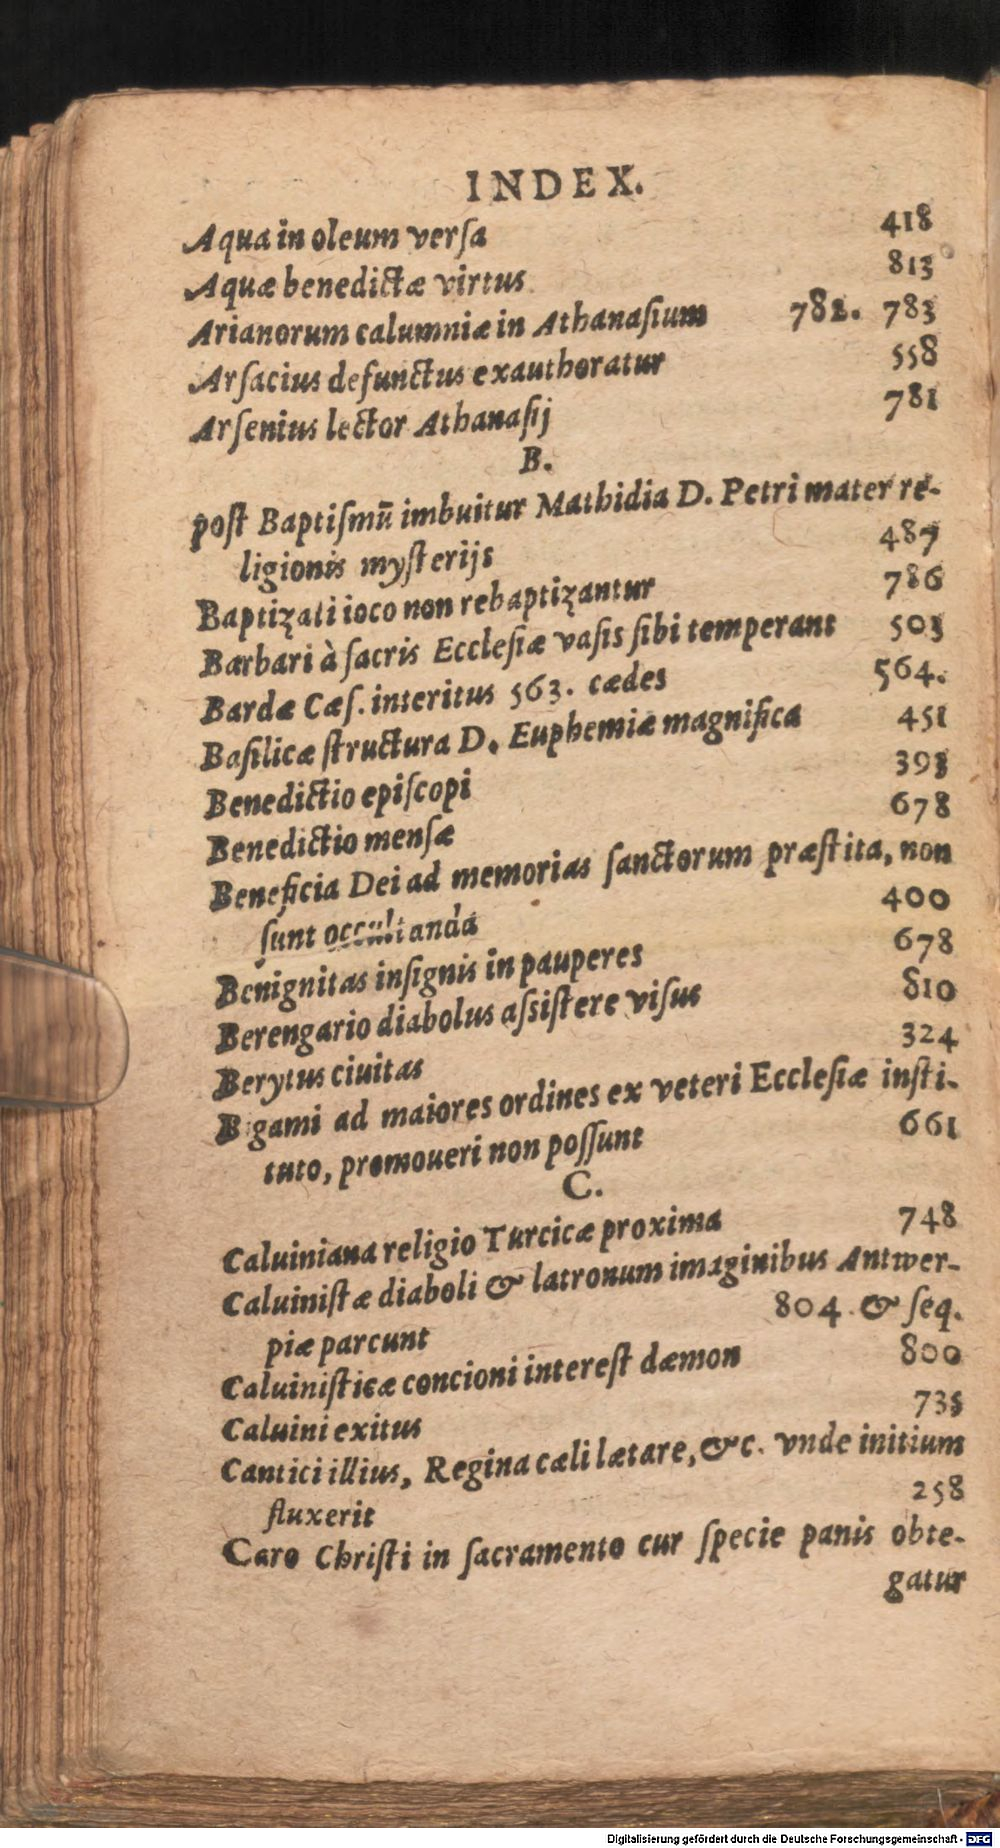 INDEX.
Aqua in oleum versa 418
Aquæ benedictæ virtus 813
Arianorum calumniæ in Athanasium 782. 783
Arsacius defunctus exauthoratur 558
Arsenius lector Athanasij 781
B.
post Baptismū imbuitur Mathidia D. Petri mater re-
ligionis mysterijs 487
Baptizati ioco non rebaptizantur 786
Barbari à sacris Ecclesiæ vasis sibi temperant 503
Bardæ Cæs. interitus 563. cædes 564.
Basilicæ structura D. Euphemiæ magnifica 451
Benedictio episcopi 393
Benedictio mensæ 678
Beneficia Dei ad memorias sanctorum præstita, non
sunt occultanda 400
Benignitas insignis in pauperes 678
Berengario diabolus assistere visus 810
Berytus ciuitas 324
Bigami ad maiores ordines ex veteri Ecclesiæ insti-
tuto, promoueri non possunt 661
C.
Caluiniana religio Turcicæ proxima 748
Caluinistæ diaboli & latronum imaginibus Antwer-
piæ parcunt 804. & seq.
Caluinisticæ concioni interest dæmon 800
Caluini exitus 735
Cantici illius, Regina cæli lætare, &c. vnde initium
fluxerit 258
Caro Christi in sacramento cur specie panis obte-
gatur
Digitalisierung gefördert durch die Deutsche Forschungsgemeinschaft - DFG